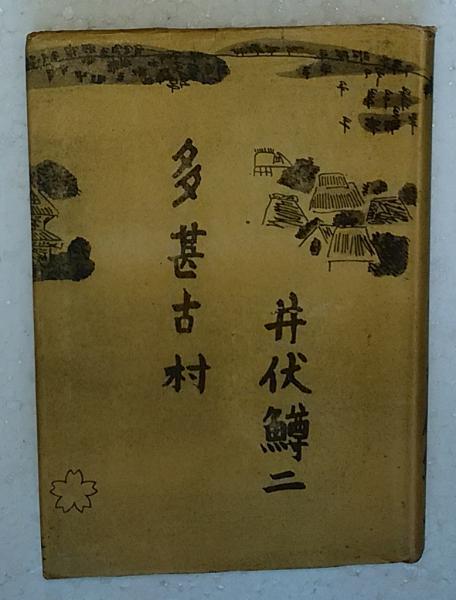 井伏鱒二
多甚古村